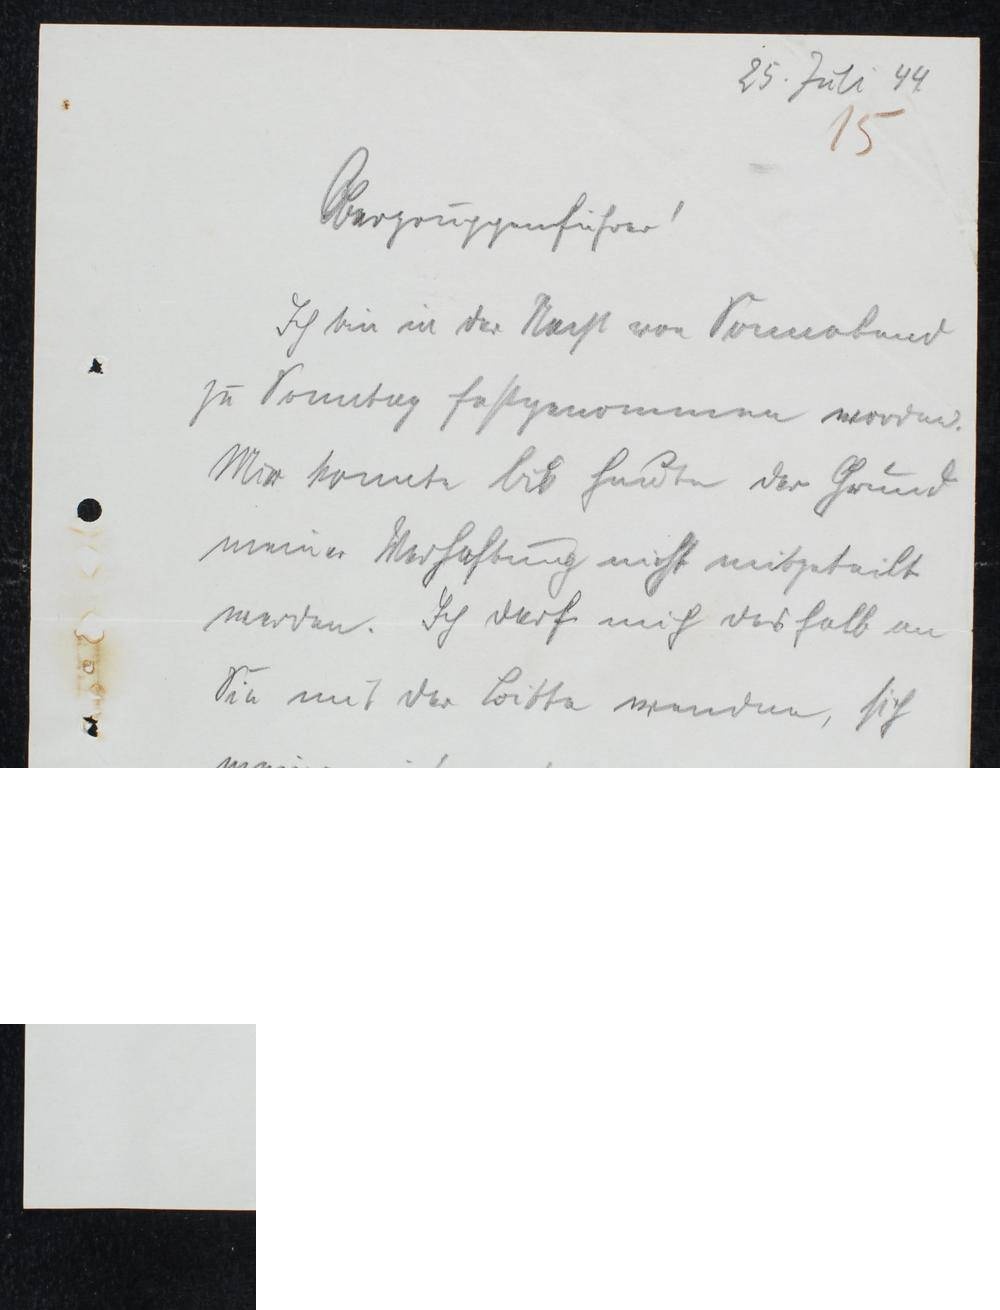 25. Juli 44
15
Obergruppenführer!
Ich bin in der Nacht von Sonnabend
zu Sonntag festgenommen worden.
Mir konnte bis heute der Grund
meiner Verhaftung nicht mitgeteilt
werden. Ich darf mich deshalb an
Sie mit der Bitte wenden, sich